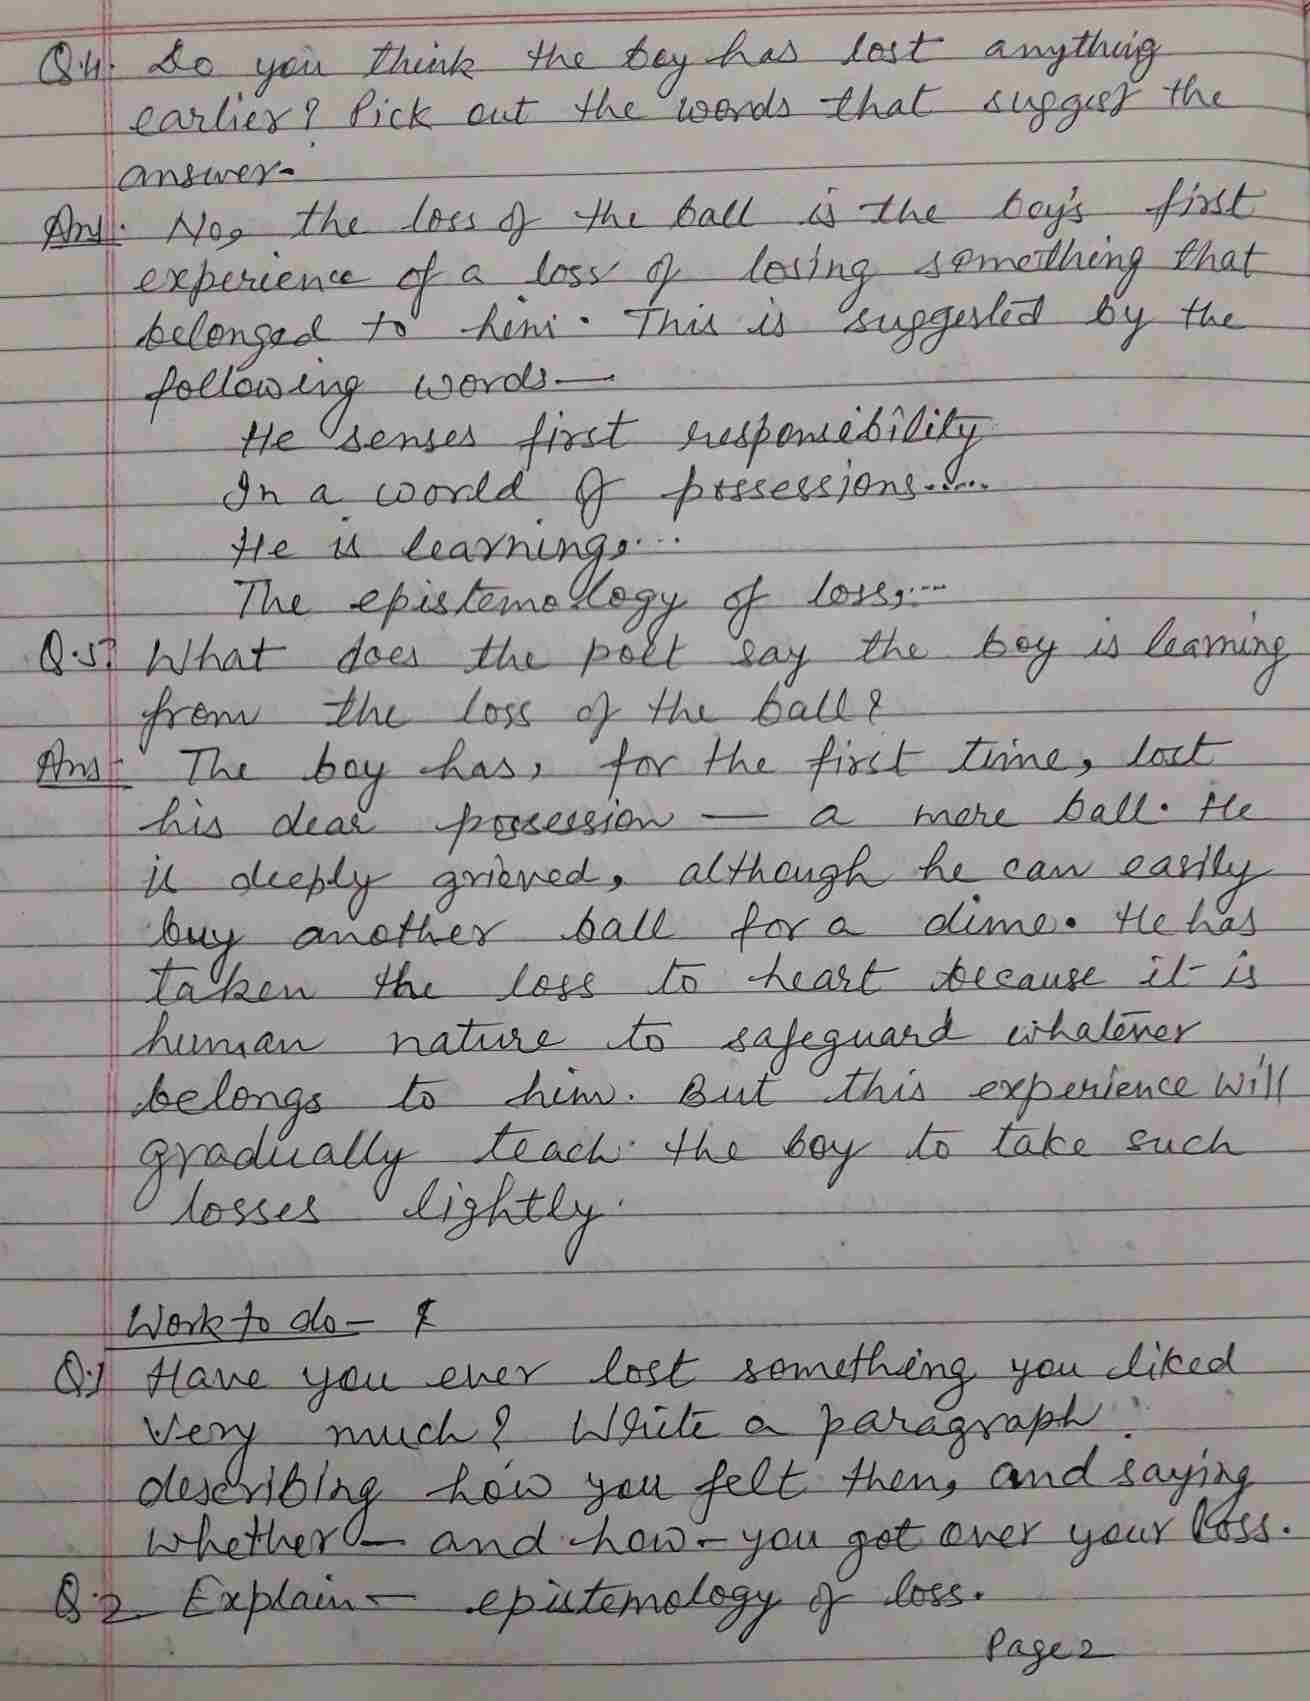 Q.4. Do you think the boy has lost anything
earlier? Pick out the words that suggest the
answer.
Ans:- No, the loss of the ball is the boy's first
experience of a loss of losing something that
belonged to him. This is suggested by the
following words—
He senses first responsibility
In a world of possessions......
He is learning,....
The epistemology of loss,....
Q.5? What does the poet say the boy is learning
from the loss of the ball?
Ans:- The boy has, for the first time, lost
his dear possession — a mere ball. He
is deeply grieved, although he can easily
buy another ball for a dime. He has
taken the loss to heart because it is
human nature to safeguard whatever
belongs to him. But this experience will
gradually teach the boy to take such
losses lightly.
Work to do—
Q.1 Have you ever lost something you liked
very much? Write a paragraph
describing how you felt then, and saying
whether — and how — you got over your loss.
Q.2. Explain — epistemology of loss.
Page 2